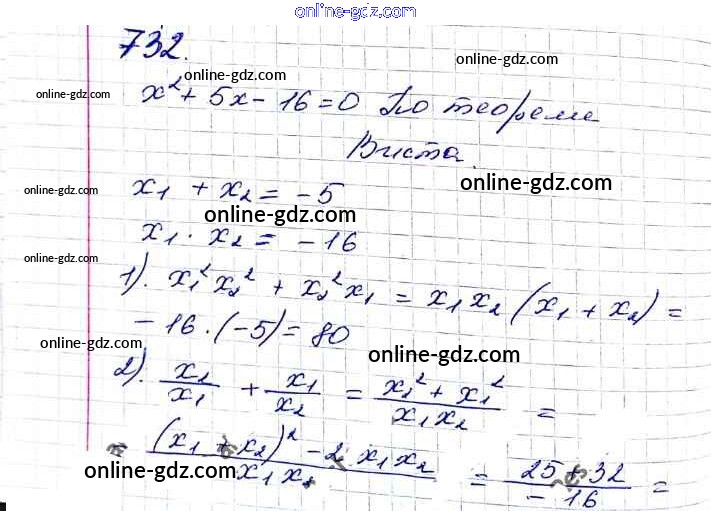 online-gdz.com
732.
online-gdz.com
online-gdz.com
online-gdz.com
x² + 5x - 16 = 0 По теореме
Виета.
online-gdz.com
online-gdz.com
x₁ + x₂ = -5
online-gdz.com
x₁ · x₂ = -16
online-gdz.com
1). x₁² x₂² + x₂² x₁ = x₁ x₂ (x₁ + x₂) =
- 16 · (-5) = 80
online-gdz.com
online-gdz.com
2). x₂/x₁ + x₁/x₂ = (x₂² + x₁²)/(x₁ x₂) =
= ((x₁ + x₂)² - 2 x₁ x₂)/(x₁ x₂) = (25 + 32)/(-16) =
online-gdz.com
online-gdz.com